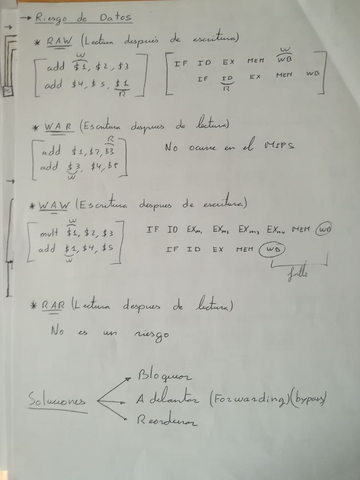 → Riesgo de Datos
* RAW (Lectura después de escritura)
W
add $1, $2, $3
add $4, $5, $1
R
W
IF ID EX MEM WB
IF ID EX MEM WB
R
* WAR (Escritura despues de lectura)
R
add $1, $2, $3
add $3, $4, $5
W
No ocurre en el MIPS
* WAW (Escritura despues de escritura)
W
mult $1, $2, $3
add $1, $4, $5
W
IF ID EXm1 EXm2 EXm3 EXm4 MEM WB
IF ID EX MEM WB
fallo
* RAR (Lectura despues de lectura)
No es un riesgo
Soluciones
Bloquear
Adelantar (Forwarding)(bypass)
Reordenar